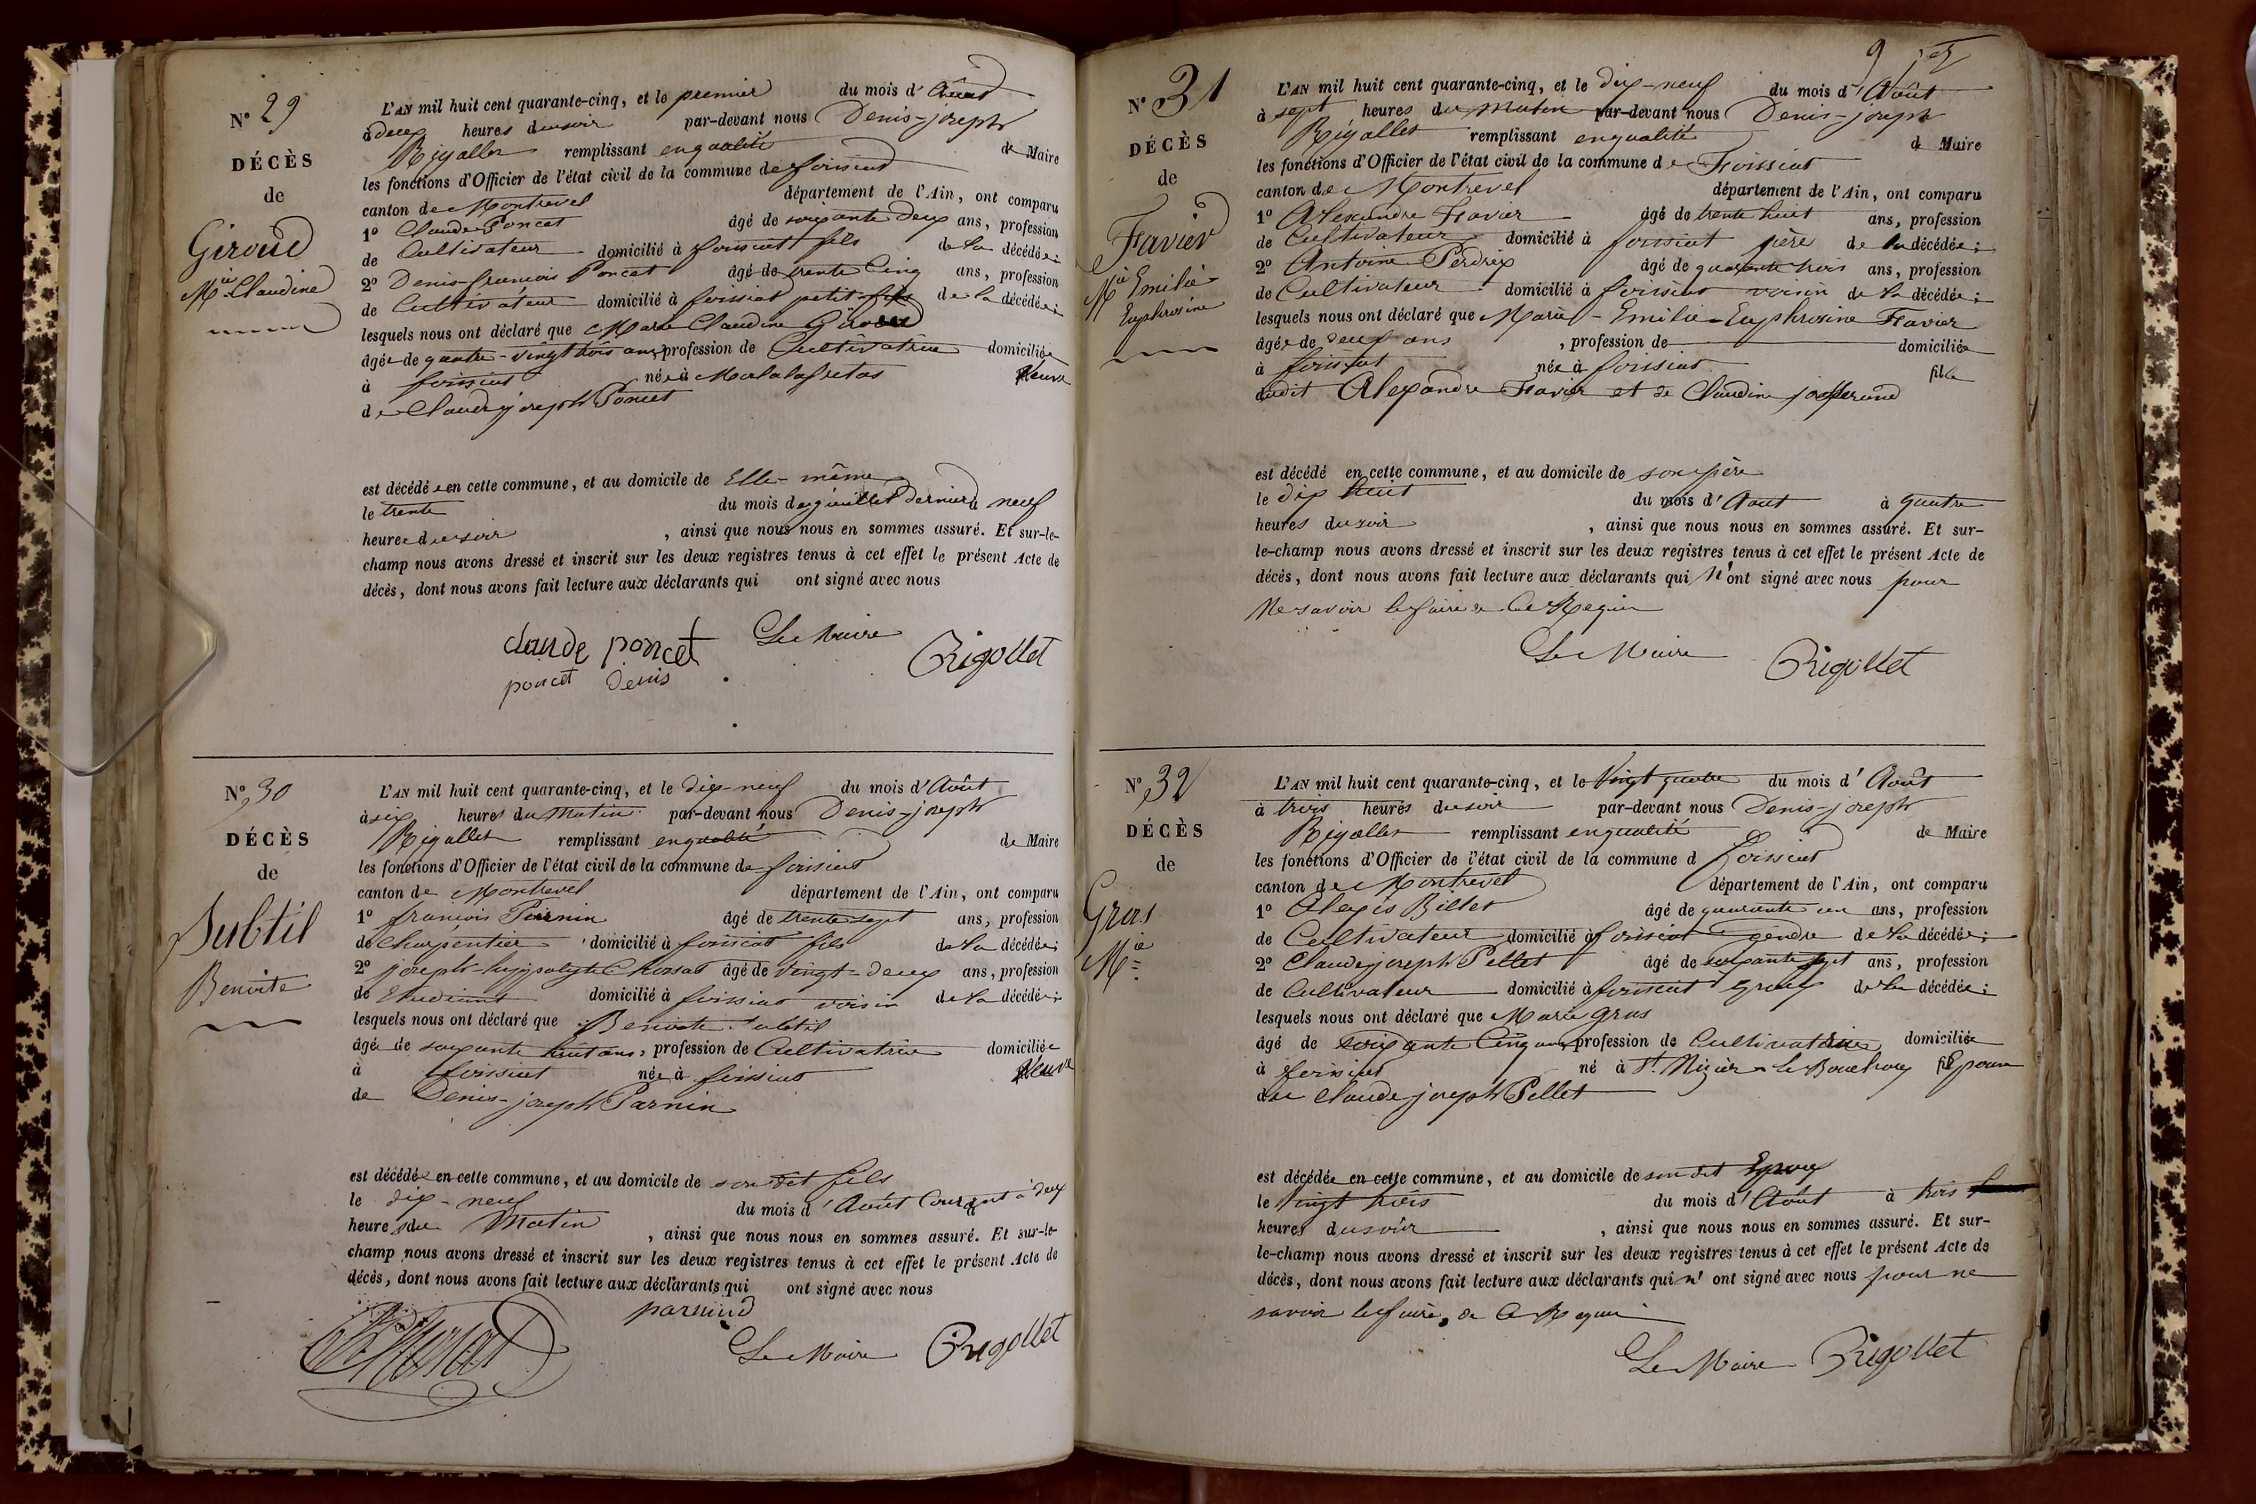 N° 29
DÉCÈS
de
Giroud
Mie Claudine
L'AN mil huit cent quarante-cinq, et le premier du mois d'Août
à deux heures du soir par-devant nous Denis-joseph
Rigollet remplissant en qualité de Maire
les fonctions d'Officier de l'état civil de la commune de foissiat
canton de Montrevel département de l'Ain, ont comparu
1° Claude Poncet âgé de soixante deux ans, profession
de Cultivateur domicilié à foissiat fils de la décédée;
2° Denis francois Poncet âgé de trente Cinq ans, profession
de Cultivateur domicilié à foissiat petit-fils de la décédée;
lesquels nous ont déclaré que Marie Claudine Giroud
âgée de quatre-vingt trois ans profession de Cultivatrice domiciliée
à foissiat née à Malafretas veuve
de Claude joseph Poncet
est décédée en cette commune, et au domicile de Elle-même
le trente du mois de juillet dernier à neuf
heures du soir, ainsi que nous nous en sommes assuré. Et sur-le-
champ nous avons dressé et inscrit sur les deux registres tenus à cet effet le présent Acte de
décès, dont nous avons fait lecture aux déclarants qui ont signé avec nous
claude poncet Le Maire Rigollet
poncet denis
N° 30
DÉCÈS
de
Subtil
Benoite
L'AN mil huit cent quarante-cinq, et le dix-neuf du mois d'Août
à six heures du Matin par-devant nous Denis-joseph
Rigollet remplissant en qualité de Maire
les fonctions d'Officier de l'état civil de la commune de foissiat
canton de Montrevel département de l'Ain, ont comparu
1° françois Parnin âgé de trente sept ans, profession
de Charpentier domicilié à foissiat fils de la décédée;
2° joseph hyppolyte Chossat âgé de vingt-deux ans, profession
de Etudiant domicilié à foissiat voisin de la décédée;
lesquels nous ont déclaré que Benoite Subtil
âgée de soixante huit ans, profession de Cultivatrice domiciliée
à foissiat née à foissiat veuve
de Denis-joseph Parnin
est décédée en cette commune, et au domicile de son dit fils
le dix-neuf du mois d'Août Courant à deux
heures du Matin, ainsi que nous nous en sommes assuré. Et sur-le-
champ nous avons dressé et inscrit sur les deux registres tenus à cet effet le présent Acte de
décès, dont nous avons fait lecture aux déclarants qui ont signé avec nous
Le Maire Rigollet
N° 31
DÉCÈS
de
Favier
Mie Emilie
Euphrosine
L'AN mil huit cent quarante-cinq, et le dix-neuf du mois d'Août
à sept heures du Matin par-devant nous Denis-joseph
Rigollet remplissant en qualité de Maire
les fonctions d'Officier de l'état civil de la commune de Foissiat
canton de Montrevel département de l'Ain, ont comparu
1° Alexandre Favier âgé de trente huit ans, profession
de Cultivateur domicilié à foissiat père de la décédée;
2° Antoine Perdrix âgé de quarante trois ans, profession
de Cultivateur domicilié à foissiat voisin de la décédée;
lesquels nous ont déclaré que Marie-Emilie-Euphrosine Favier
âgée de neuf ans, profession de domiciliée
à foissiat née à foissiat fille
dudit Alexandre Favier et de Claudine josserand
est décédé en cette commune, et au domicile de son père
le dix huit du mois d'Aout à quatre
heures du soir, ainsi que nous nous en sommes assuré. Et sur-
le-champ nous avons dressé et inscrit sur les deux registres tenus à cet effet le présent Acte de
décès, dont nous avons fait lecture aux déclarants qui n'ont signé avec nous pour
Ne savoir le faire de ce Requis
Le Maire Rigollet
N° 32
DÉCÈS
de
Gras
Mie
L'AN mil huit cent quarante-cinq, et le vingt quatre du mois d'Août
à trois heures du soir par-devant nous Denis-joseph
Rigollet remplissant en qualité de Maire
les fonctions d'Officier de l'état civil de la commune d foissiat
canton de Montrevel département de l'Ain, ont comparu
1° Alexis Billet âgé de quarante un ans, profession
de Cultivateur domicilié à foissiat gendre de la décédée;
2° Claude joseph Pellet âgé de soixante sept ans, profession
de Cultivateur domicilié à foissiat Epoux de la décédée;
lesquels nous ont déclaré que Marie Gras
âgé de soixante Cinq ans, profession de Cultivatrice domiciliée
à foissiat né à St. Nizier le Bouchoux Epouse
de Claude joseph Pellet
est décédée en cette commune, et au domicile de son dit Epoux
le vingt trois du mois d'Août à trois
heures du soir, ainsi que nous nous en sommes assuré. Et sur-
le-champ nous avons dressé et inscrit sur les deux registres tenus à cet effet le présent Acte de
décès, dont nous avons fait lecture aux déclarants qui n'ont signé avec nous pour ne
savoir le faire, de ce Requis
Le Maire Rigollet